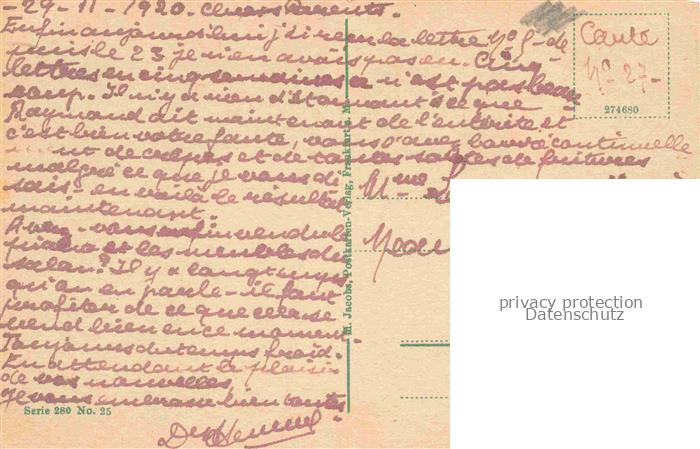 - 29 - 11 - 1920. Chers Parents.
Enfin aujourd'hui j'ai reçu la lettre No 5 - de
puis le 23 je n'en avais pas eu. Cinq
lettres en cinq semaines ce n'est pas beau
coup. Il n'y a rien d'étonnant à ce que
Raymond ait maintenant de l'entérite et
c'est bien votre faute, vous l'avez bourré continuelle
nt de crêpes et de toutes sortes de fritures
malgré ce que je vous di
sais - en voilà le résultat
maintenant.
Avez-vous enfin vendu le
piano et les meubles du
salon? Il y a longtemps
qu'on en parle - il faut
profiter de ce que cela se
vend bien en ce moment.
Toujours du temps froid.
En attendant le plaisir
de vos nouvelles,
je vous embrasse bien toutes
Serie 280 No. 25
M. Jacobs, Postkarten-Verlag, Frankfurt a. M.
Carte
No 27 -
274680
Mme
privacy protection
Datenschutz